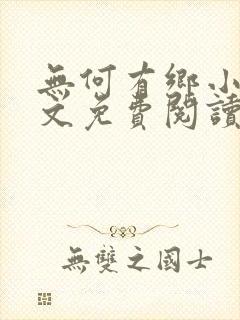 無何有鄉小
文免費閱讀
無雙之國士